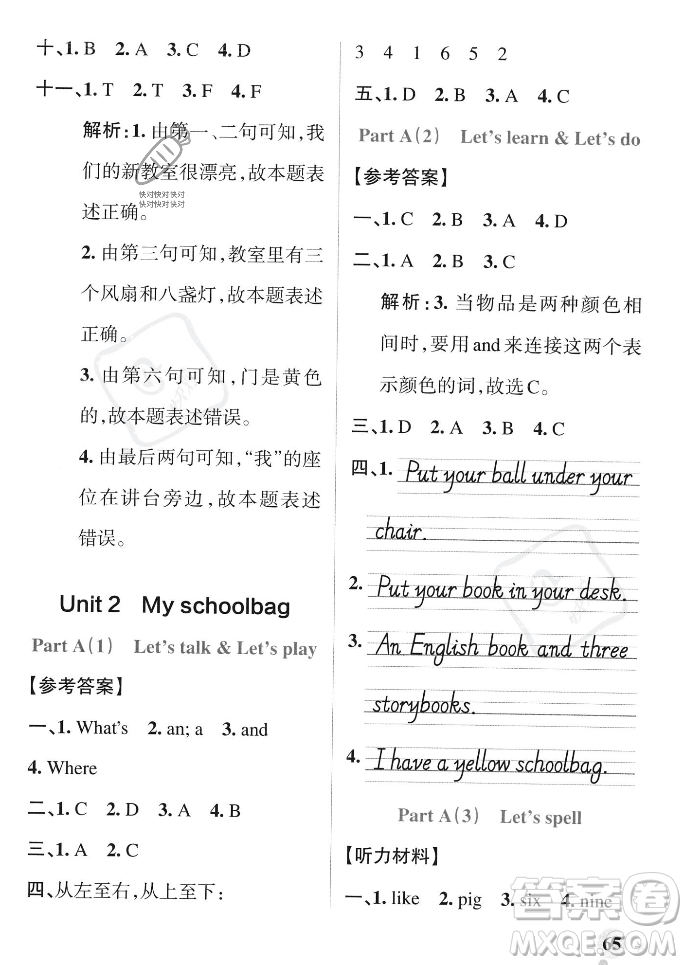 十、1. B 2. A 3. C 4. D
十一、1. T 2. T 3. F 4. F
解析:1. 由第一、二句可知,我
们的新教室很漂亮,故本题表
述正确。
快对快对快对
快对快对快对
2. 由第三句可知,教室里有三
个风扇和八盏灯,故本题表述
正确。
3. 由第六句可知,门是黄色
的,故本题表述错误。
4. 由最后两句可知,“我”的座
位在讲台旁边,故本题表述
错误。
Unit 2 My schoolbag
Part A(1) Let's talk & Let's play
【参考答案】
一、1. What's 2. an; a 3. and
4. Where
二、1. C 2. D 3. A 4. B
三、1. A 2. C
四、从左至右,从上至下:
3 4 1 6 5 2
五、1. D 2. B 3. A 4. C
Part A(2) Let's learn & Let's do
【参考答案】
一、1. C 2. B 3. A 4. D
二、1. A 2. B 3. C
解析:3. 当物品是两种颜色相
间时,要用and来连接这两个表
示颜色的词,故选C。
三、1. D 2. A 3. C 4. B
四、1. Put your ball under your
chair.
2. Put your book in your desk.
3. An English book and three
storybooks.
4. I have a yellow schoolbag.
Part A(3) Let's spell
【听力材料】
一、1. like 2. pig 3. six 4. nine
65
答案圈
MXQE.COM